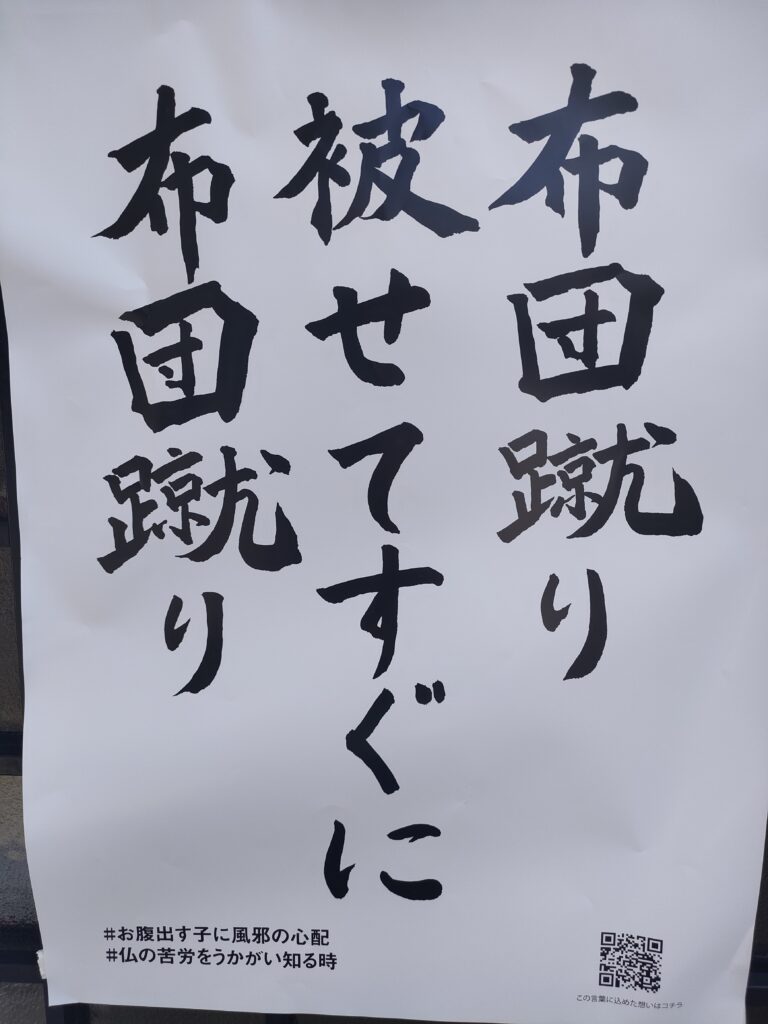 布団蹴り
被せてすぐに
布団蹴り
#お腹出す子に風邪の心配
#仏の苦労をうかがい知る時
この言葉に込めた想いはコチラ